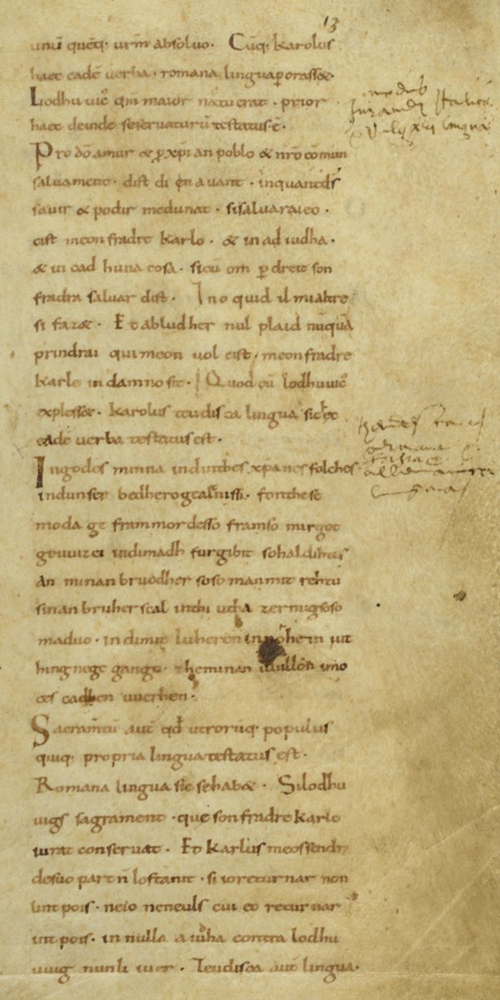 13
unũ quẽq; urm̃ absoluo. Cũq; karolus
haec eadẽ uerba. romana lingua porasset.
Lodhuuic̃ qm̃ maior natu erat. prior
haec deinde seseruaturũ testatus ẽ.
Pro dõ amur & p xp̃ian poblo & nr̃o cõmun
saluament. dist di ẽn auant. inquantds̃
sauir & podir medunat. sisaluaraieo.
cist meon fradre karlo. & in ad iudha.
& in cad huna cosa. sicũ om p dreit son
fradra saluar dist. Ino quid il mi altre
si faz&. Et abludher nul plaid nũquã
prindrai qui meon uol cist. meon fradre
karle in damno sit. Quod cũ lodhuuic̃
explesset. karolus teudisca lingua sic hec
eadẽ uerba testatus est.
Ingodes minna indinthes xp̃anes folches
indunser bedhero gealtnissi. fonthese
moda ge frammordesso framso mirgot
geuuizci indimadh furgibit sohaldihtes
an minan bruodher soso manmit rehtu
sinan bruher scal inthi utha zermigsoso
maduo. indimit luheren in nohein iut
hing nege gango. zheminan uuillon imo
ces cadhen uuerhen.
Sacramtũ aut qd utrorũq; populus
quiq; propria lingua testatus est.
Romana lingua sic sehabet. Silodhu
uigs sagrament. que son fradre karlo
iurat conseruat. Et karlus meossendr
desuo part ñ lostanit. si ioreturnar non
lint pois. neio neneuls cui eo returnar
int pois. in nulla aiudha contra lodhu
uuig nunli iuer. Teudisca aut lingua.